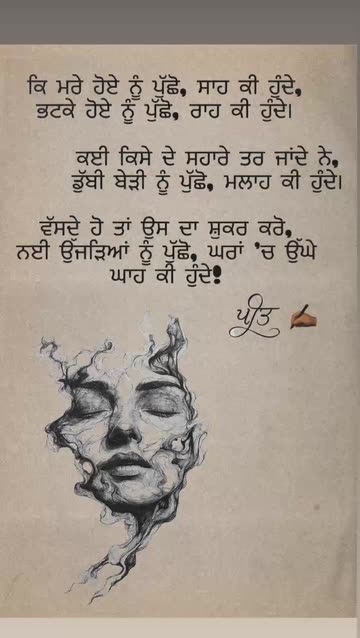 ਕਿ ਮਰੇ ਹੋਏ ਨੂੰ ਪੁੱਛੋ, ਸਾਹ ਕੀ ਹੁੰਦੇ,
ਭਟਕੇ ਹੋਏ ਨੂੰ ਪੁੱਛੋ, ਰਾਹ ਕੀ ਹੁੰਦੇ।
ਕਈ ਕਿਸੇ ਦੇ ਸਹਾਰੇ ਤਰ ਜਾਂਦੇ ਨੇ,
ਡੁੱਬੀ ਬੇੜੀ ਨੂੰ ਪੁੱਛੋ, ਮਲਾਹ ਕੀ ਹੁੰਦੇ।
ਵੱਸਦੇ ਹੋ ਤਾਂ ਉਸ ਦਾ ਸ਼ੁਕਰ ਕਰੋ,
ਨਈ ਉੱਜੜਿਆਂ ਨੂੰ ਪੁੱਛੋ, ਘਰਾਂ 'ਚ ਉੱਘੇ
ਘਾਹ ਕੀ ਹੁੰਦੇ!
ਪ੍ਰੀਤ ✍🏾